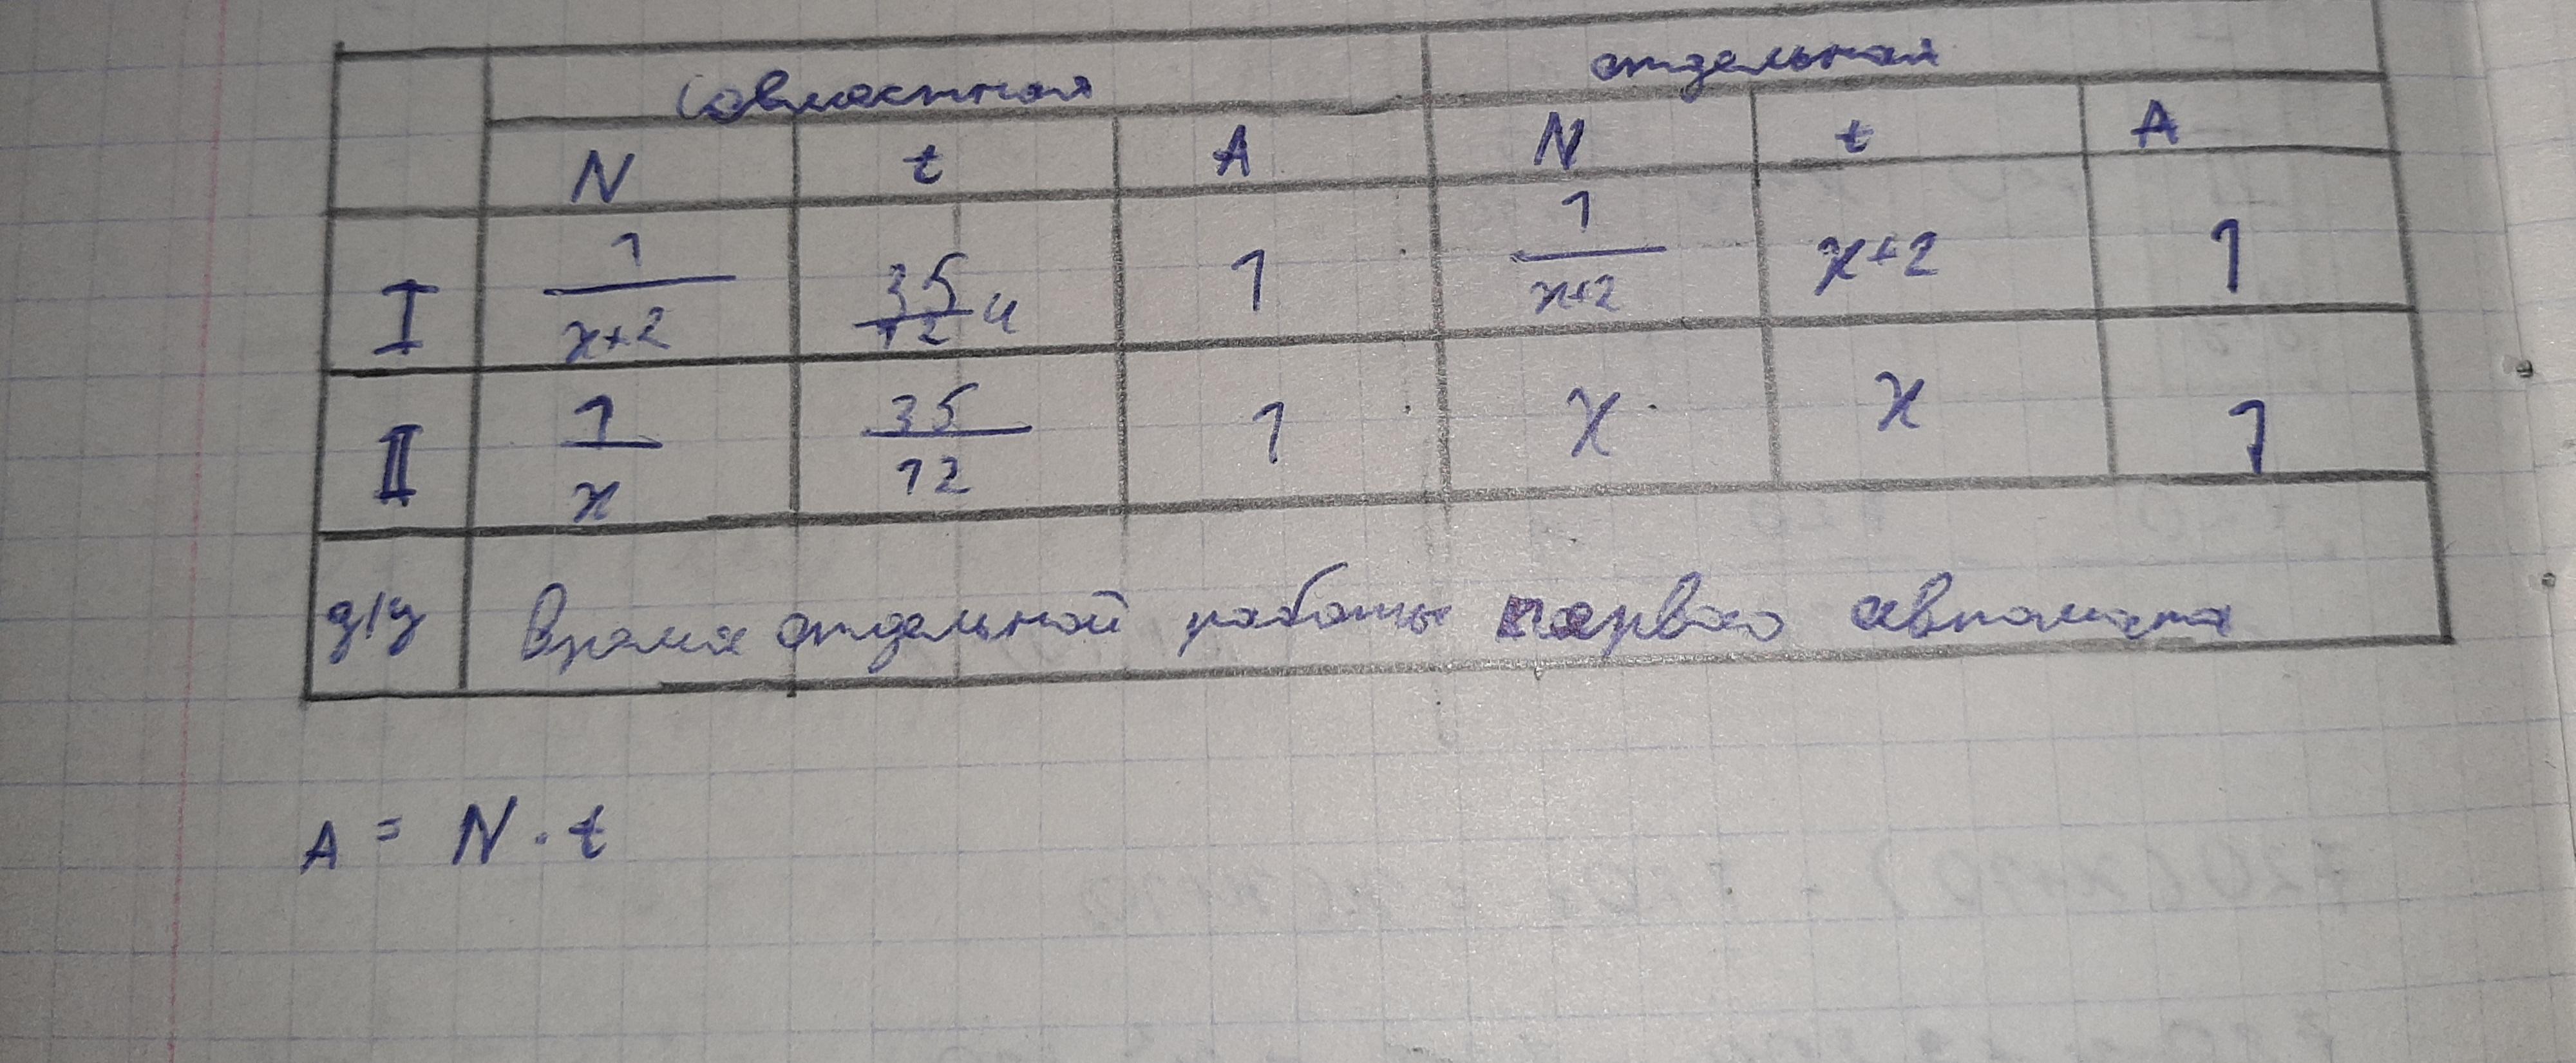 совместная отдельная
N t A N t A
I 1/(x+2) 35/12 ч 1 1/(x+2) x+2 1
II 1/x 35/12 1 x x 1
д/у Время отдельной работы первого автомата
A = N · t